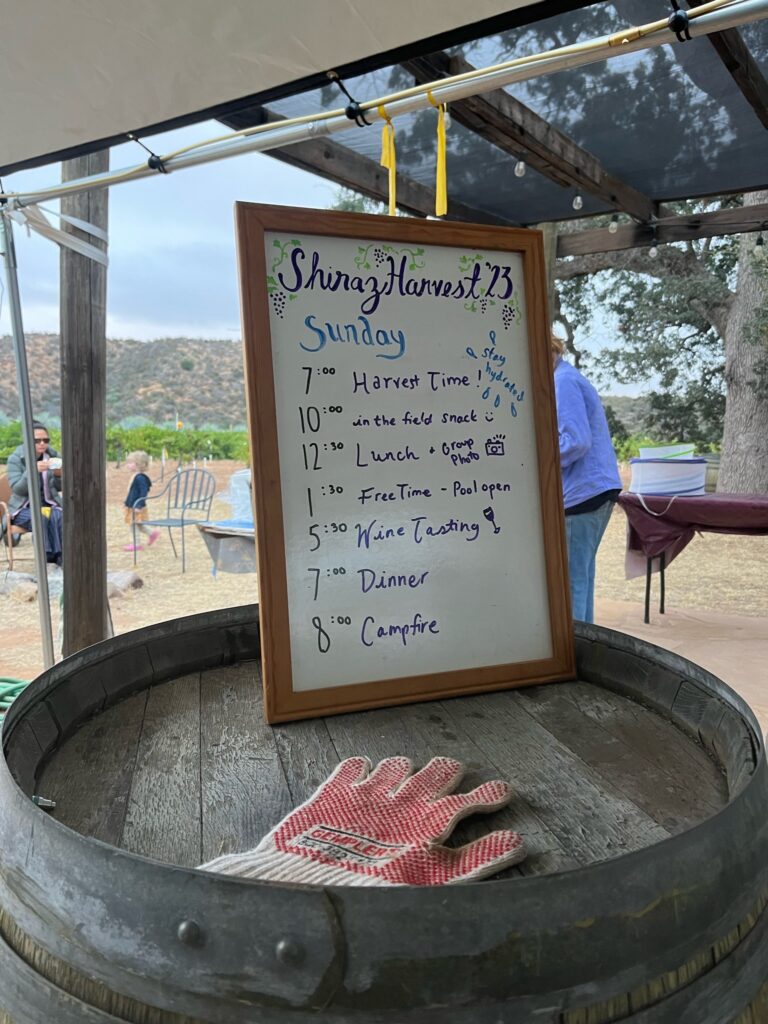 Shiraz Harvest '23
Sunday
stay
hydrated
7:00 Harvest Time!
10:00 in the field snack
12:30 Lunch + Group
Photo
1:30 Free Time - Pool open
5:30 Wine Tasting
7:00 Dinner
8:00 Campfire